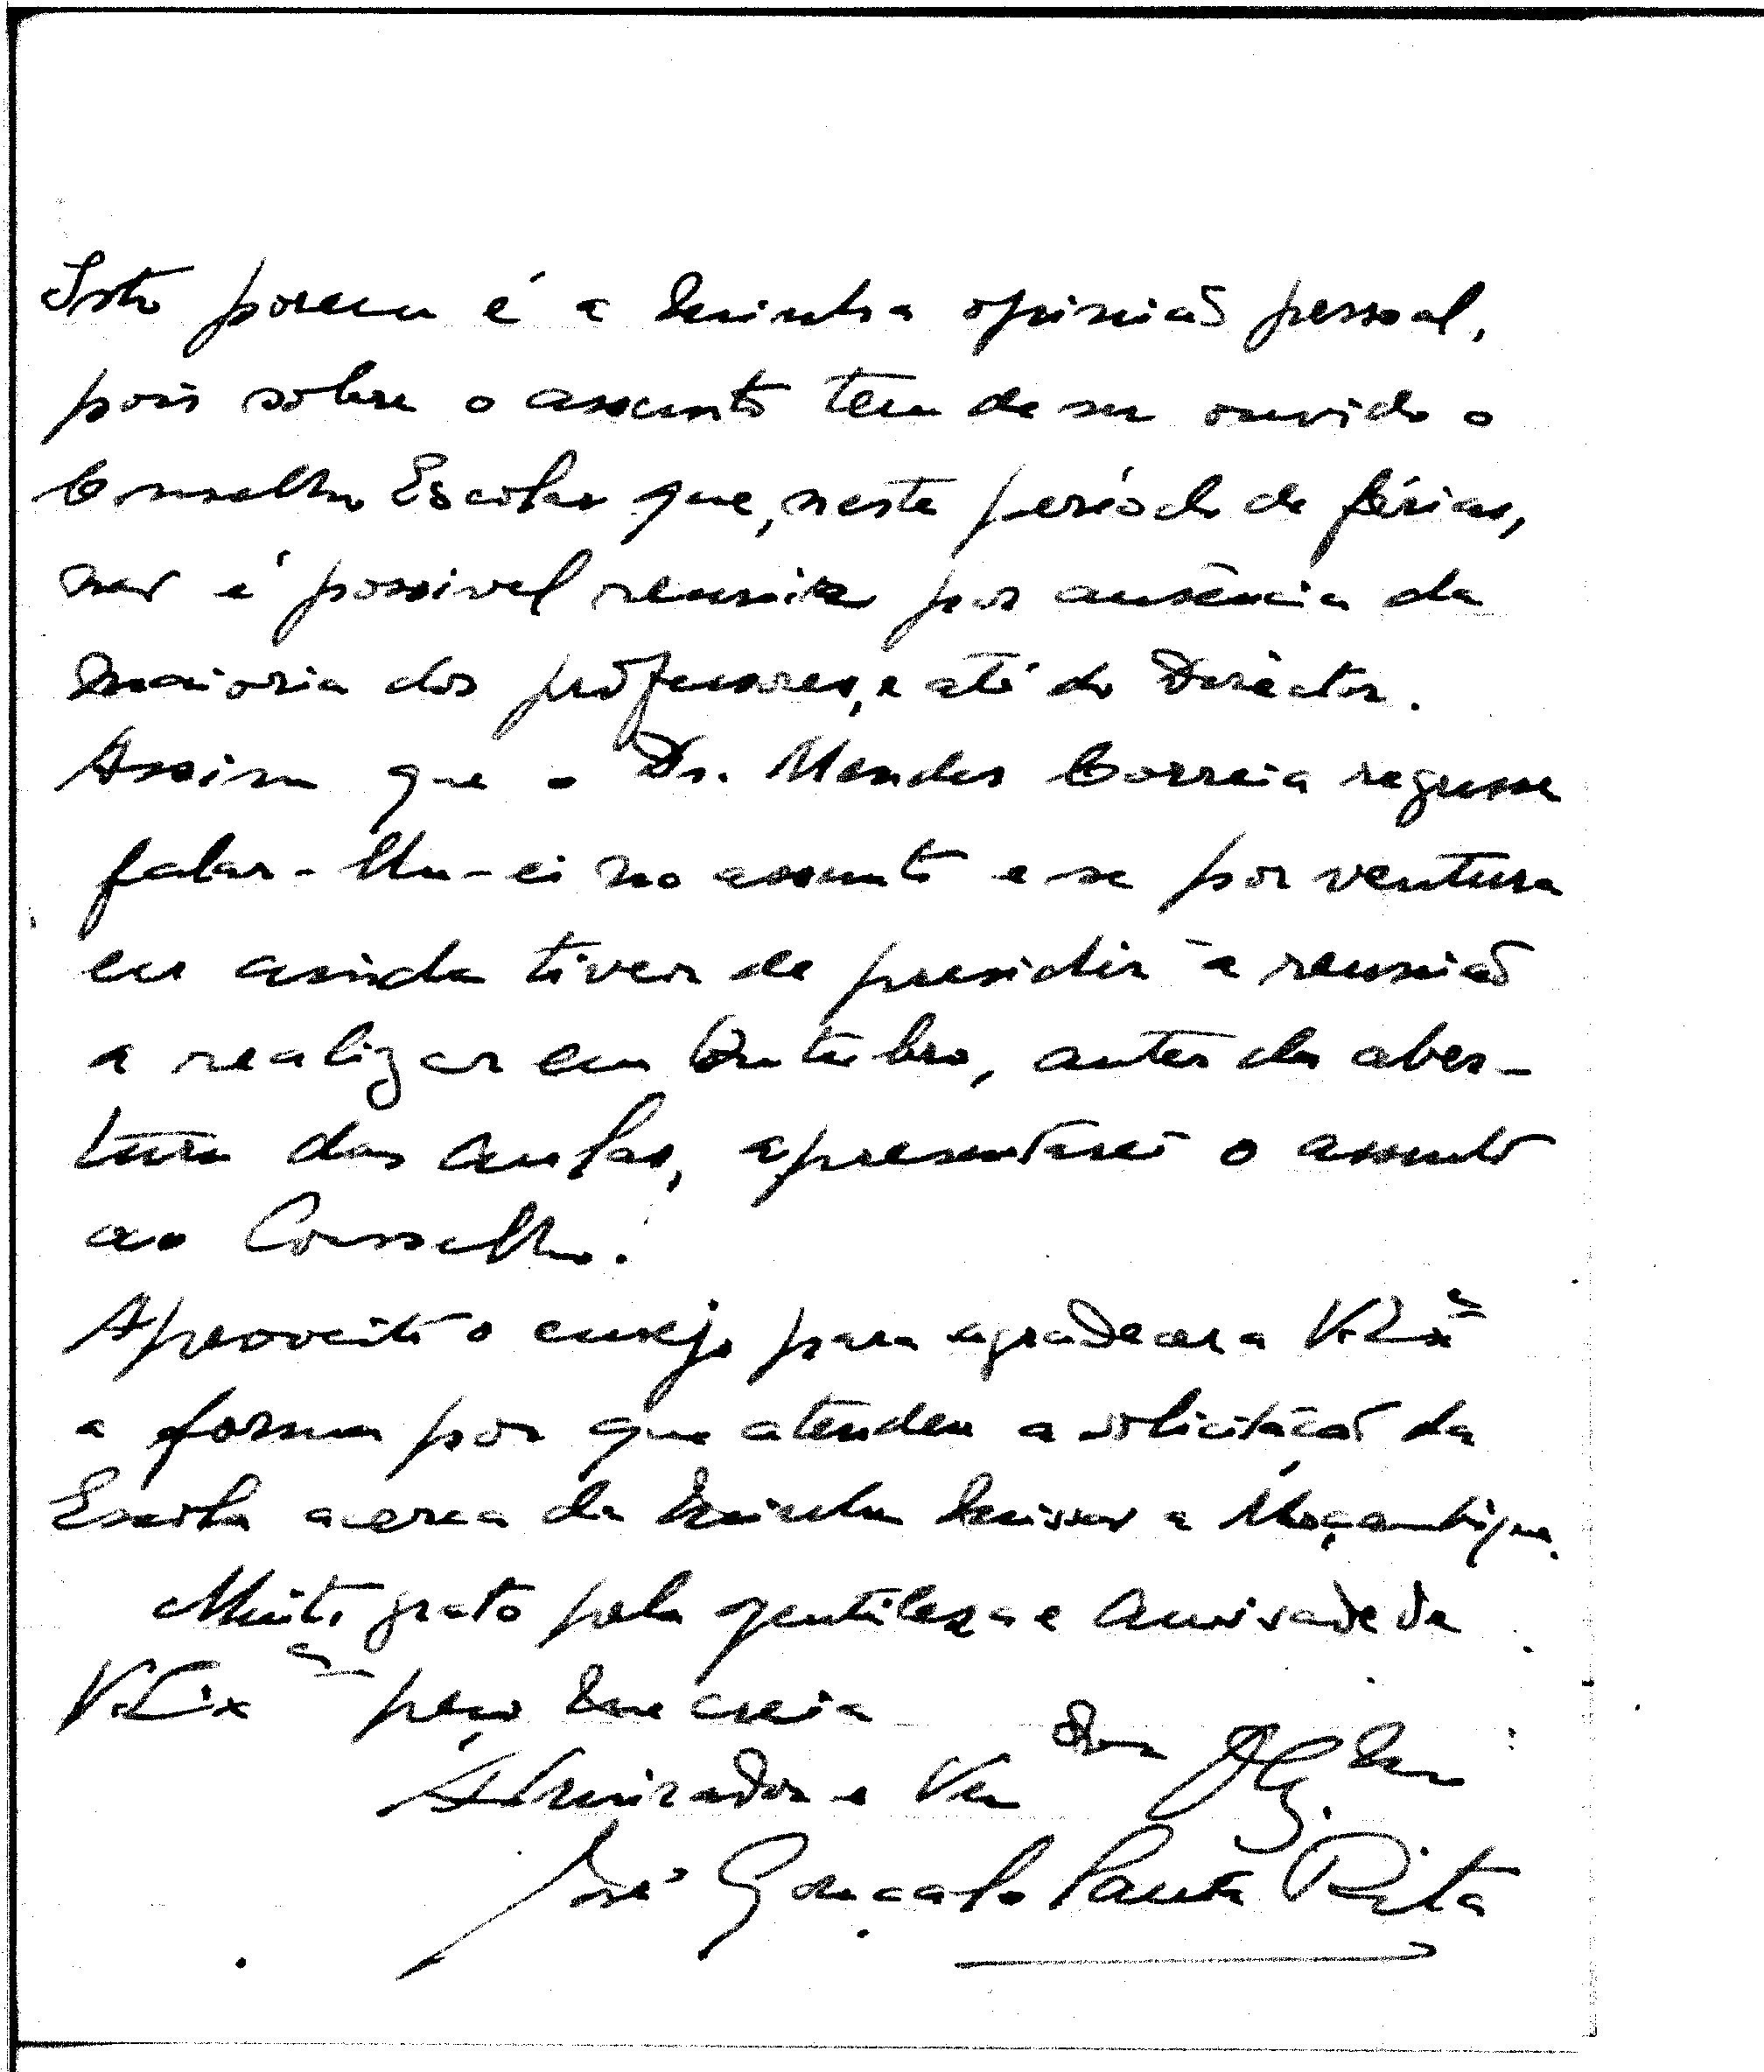 Isto porem é a minha opinião pessoal,
pois sôbre o assunto tem de ser ouvido o
Conselho Escolar que, neste período de férias,
não é possivel reunir por ausência da
maioria dos professores, e até do Diréctor.
Assim que o Dr. Mendes Correia regresse
falar-lhe-ei no assunto e se porventura
eu ainda tiver de presidir à reunião
a realizar em Outubro, antes da aber-
tura das aulas, apresentarei o assunto
ao Conselho.
Aproveito o ensejo para agradecer a V. Exª
a forma por que atendeu a solicitação da
Escola acerca da minha missão a Moçambique.
Muito grato pela gentileza e amisade de
V. Exª peço me creia
Admirador e Ven
José Gonçalo Santa Rita